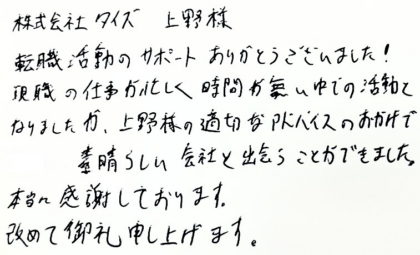 株式会社タイズ 上野様
転職活動のサポートありがとうございました!
現職の仕事が忙しく時間が無い中での活動と
なりましたが、上野様の適切なアドバイスのおかげで
素晴らしい会社と出会うことができました。
本当に感謝しております。
改めて御礼申し上げます。